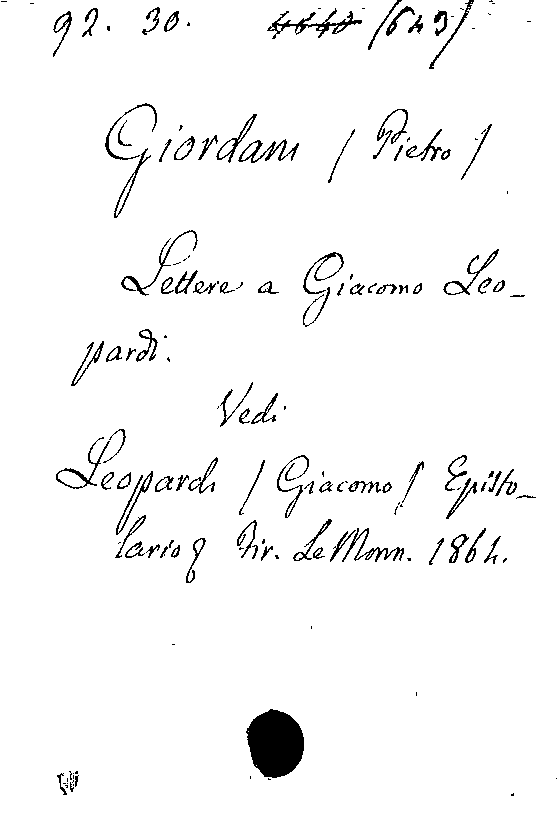 92. 30. 4640 (643)
Giordani (Pietro)
Lettere a Giacomo Leo-
pardi.
Vedi
Leopardi (Giacomo) Episto-
lario Fir. Le Monn. 1864.